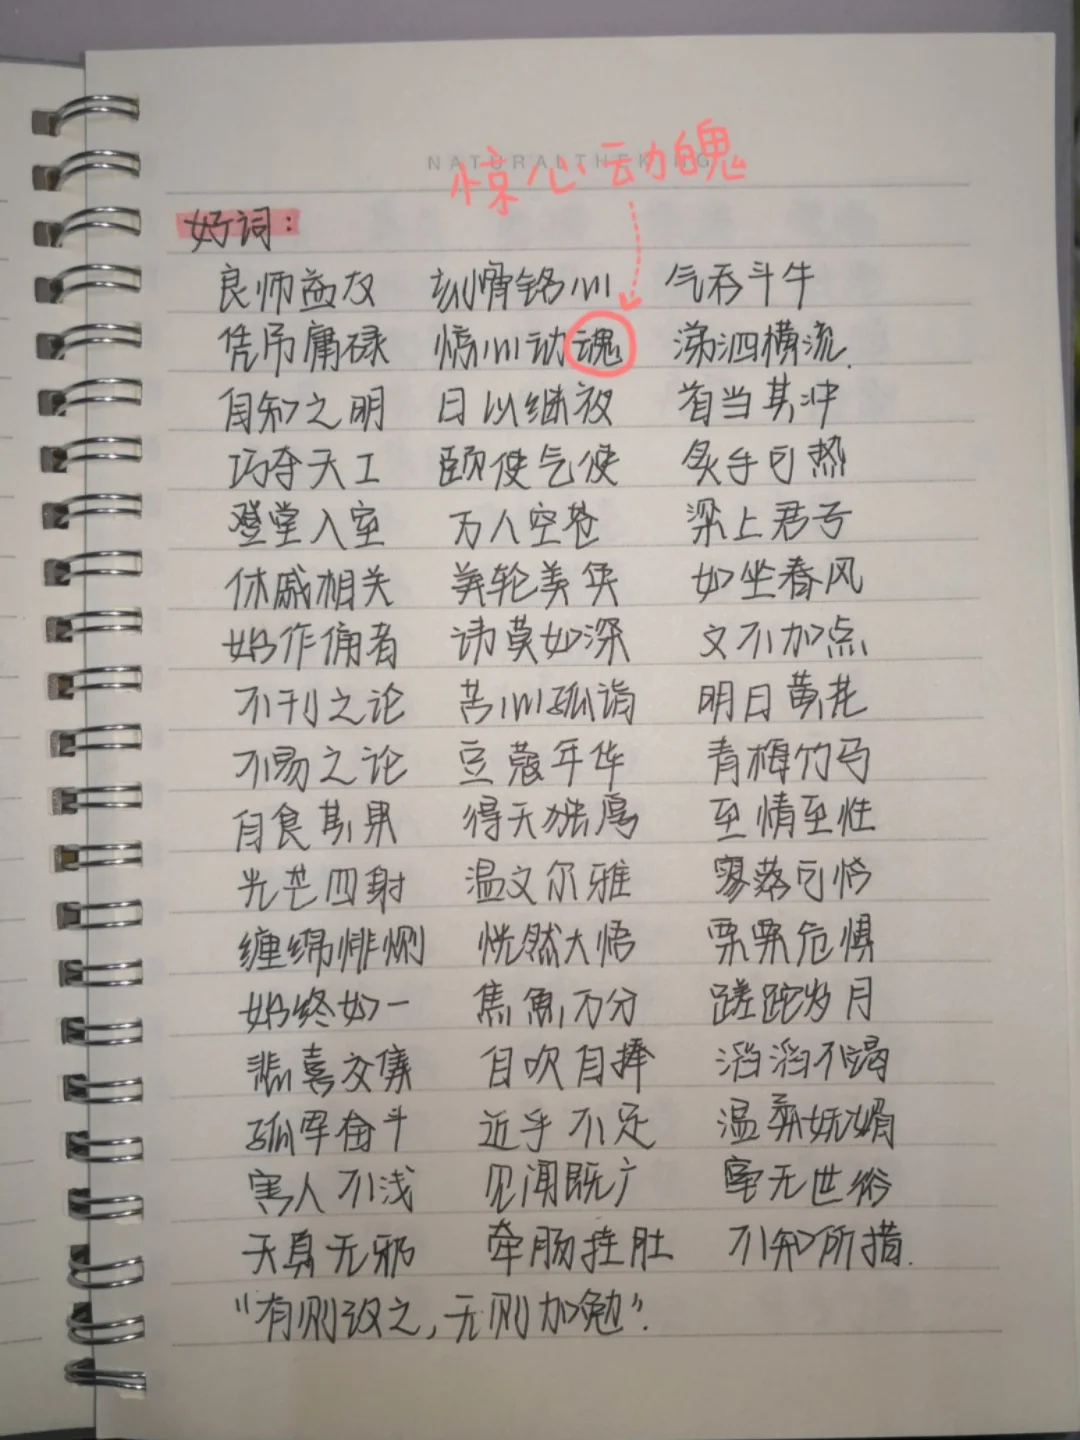 NATURALTHEKING
惊心动魄
好词：
良师益友 刻骨铭心 气吞斗牛
凭吊庸碌 惊心动魂 涕泗横流.
自知之明 日以继夜 首当其冲
巧夺天工 颐使气使 炙手可热
登堂入室 万人空巷 梁上君子
休戚相关 美轮美奂 如坐春风
始作俑者 讳莫如深 文不加点
不刊之论 苦心孤诣 明日黄花
不易之论 豆蔻年华 青梅竹马
自食其果 得天独厚 至情至性
光芒四射 温文尔雅 寥落可怜
缠绵悱恻 恍然大悟 栗栗危惧
始终如一 焦急万分 蹉跎岁月
悲喜交集 自吹自捧 滔滔不竭
孤军奋斗 近乎不足 温柔妩媚
害人不浅 见闻既广 毫无世俗
天真无邪 牵肠挂肚 不知所措.
“有则改之,无则加勉”.